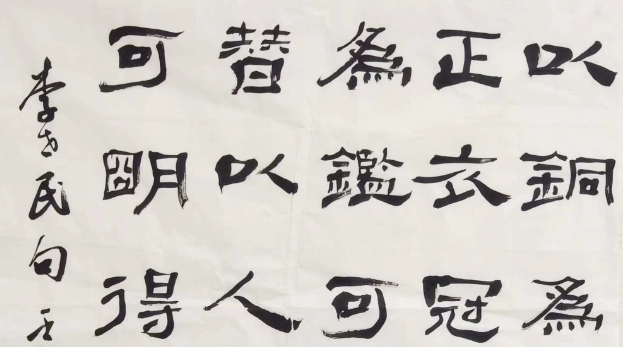 以銅為
正衣冠
為鑑可
替以人
可明得
李世民句